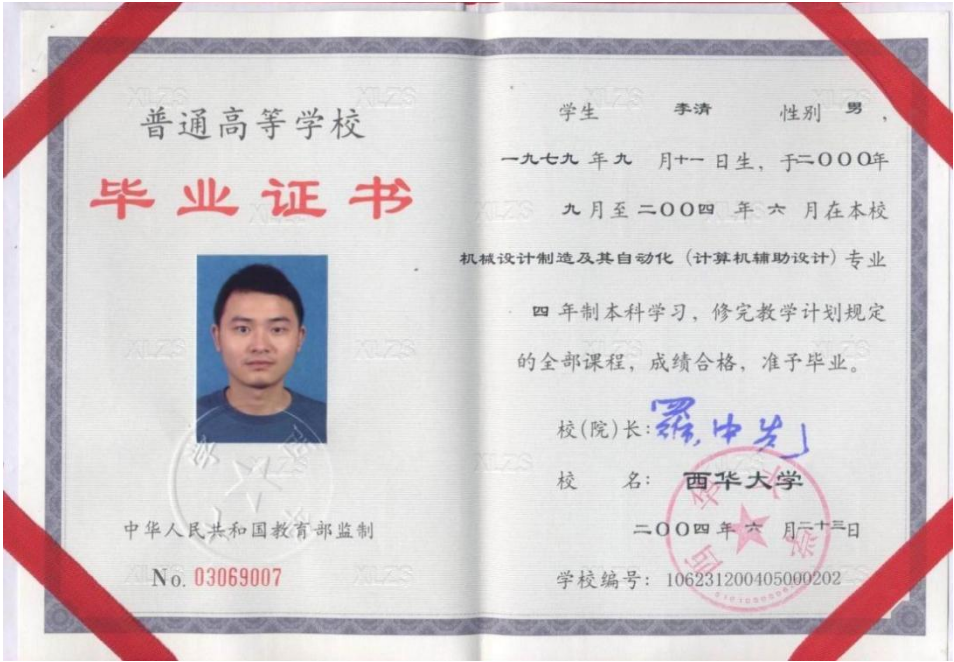 普通高等学校
毕业证书
中华人民共和国教育部监制
No. 03069007
学生 李清 性别 男,
一九七九 年 九 月十一 日生, 于二〇〇〇年
九 月至 二〇〇四 年 六 月在本校
机械设计制造及其自动化 (计算机辅助设计) 专业
四 年制本科学习, 修完教学计划规定
的全部课程, 成绩合格, 准予毕业。
校(院)长: 羅中先
校 名: 西华大学
二〇〇四 年 六 月二十三日
学校编号: 106231200405000202
西华大学
XLZS